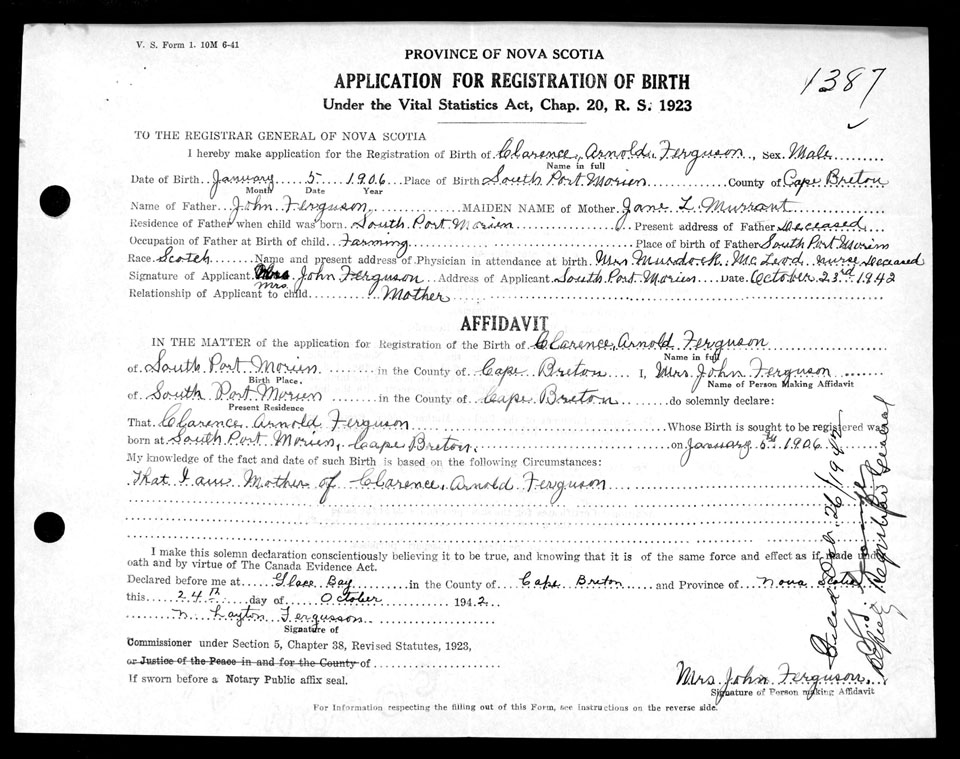 V. S. Form 1. 10M 6-41
PROVINCE OF NOVA SCOTIA
APPLICATION FOR REGISTRATION OF BIRTH
Under the Vital Statistics Act, Chap. 20, R. S. 1923
1387
TO THE REGISTRAR GENERAL OF NOVA SCOTIA
I hereby make application for the Registration of Birth of Clarence, Arnold, Ferguson, Sex Male
Name in full
Date of Birth January 5 1906 Place of Birth South Port Morien County of Cape Breton
Month Date Year
Name of Father John Ferguson MAIDEN NAME of Mother Jane L Murrant
Residence of Father when child was born South Port Morien Present address of Father Deceased
Occupation of Father at Birth of child Farming Place of birth of Father South Port Morien
Race Scotch Name and present address of Physician in attendance at birth Mrs Murdock McLeod nurse Deceased
Signature of Applicant Mrs John Ferguson Address of Applicant South Port Morien Date October 23rd 1942
Mrs.
Relationship of Applicant to child Mother
AFFIDAVIT
IN THE MATTER of the application for Registration of the Birth of Clarence, Arnold Ferguson
Name in full
of South Port Morien in the County of Cape Breton I, Mrs John Ferguson
Birth Place. Name of Person Making Affidavit
of South Port Morien in the County of Cape Breton do solemnly declare:
Present Residence
That Clarence Arnold Ferguson Whose Birth is sought to be registered was
born at South Port Morien, Cape Breton, on January 5th 1906
My knowledge of the fact and date of such Birth is based on the following Circumstances:
That I am Mother of Clarence, Arnold Ferguson
I make this solemn declaration conscientiously believing it to be true, and knowing that it is of the same force and effect as if made under
oath and by virtue of The Canada Evidence Act.
Declared before me at Glace Bay in the County of Cape Breton and Province of Nova Scotia
this 24th day of October 1942
N Layton Fergusson
Signature of
Commissioner under Section 5, Chapter 38, Revised Statutes, 1923,
or Justice of the Peace in and for the County of
If sworn before a Notary Public affix seal.
Mrs. John Ferguson.
Signature of Person making Affidavit
For Information respecting the filling out of this Form, see instructions on the reverse side.
Filed Oct. 26/1942
Deputy Registrar General